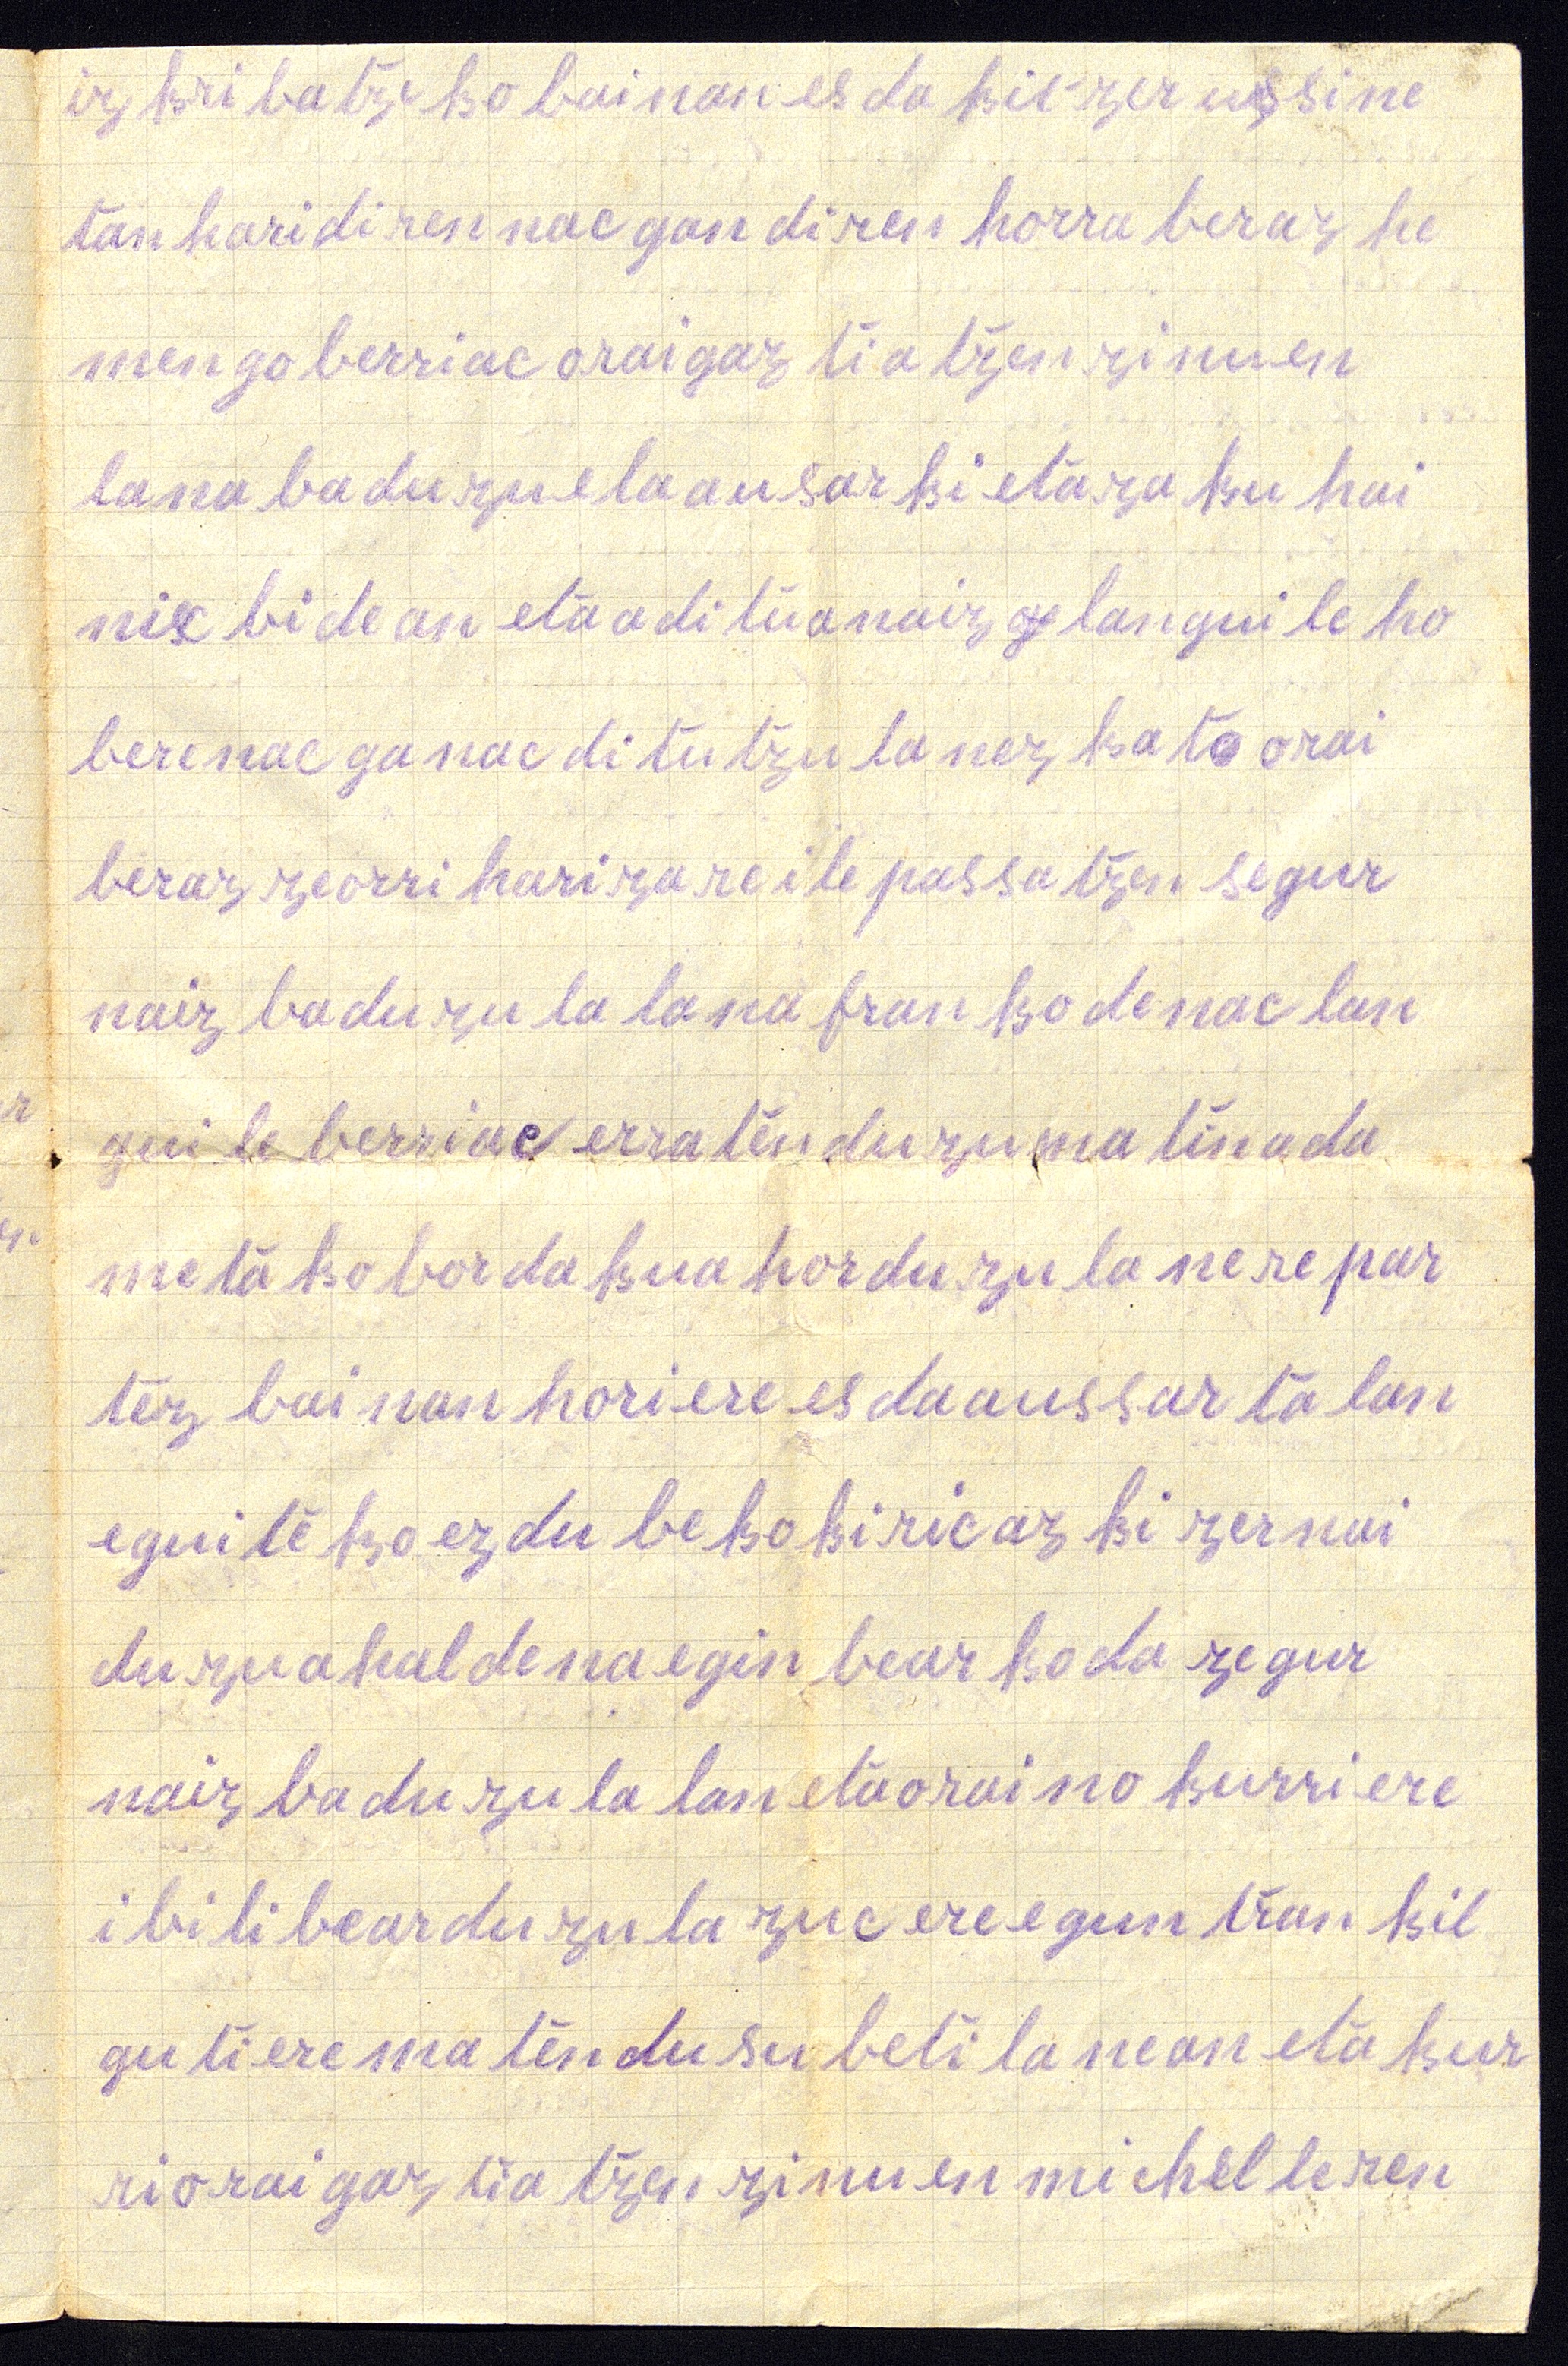 izkribatzeko bainan es dakit zer ussine
tan hari diren nac gan diren horra beraz he
mengo berriac orai gaztiatzen zinuen
lana baduzuela ausarki eta zaku hai
nic bidean eta aditua naiz languile ho
berenac ganac ditutzula nezkato orai
beraz zeorri hari zare ile passatzen segur
naiz baduzula lana franko denac lan
guile berriac erraten duzu matina da
metako bordakua horduzula nere par
tez bainan hori ere es da aussarta lan
equiteko ez du beko kiric azki zer nai
duzu ahal dena egin bearko da zegur
naiz baduzula lan eta oraino kurri ere
ibili bearduzula zuc ere egun trankil
guti ere maten dusu beti lanean eta kur
ri orai gaztiatzen zinuen michelleren
r